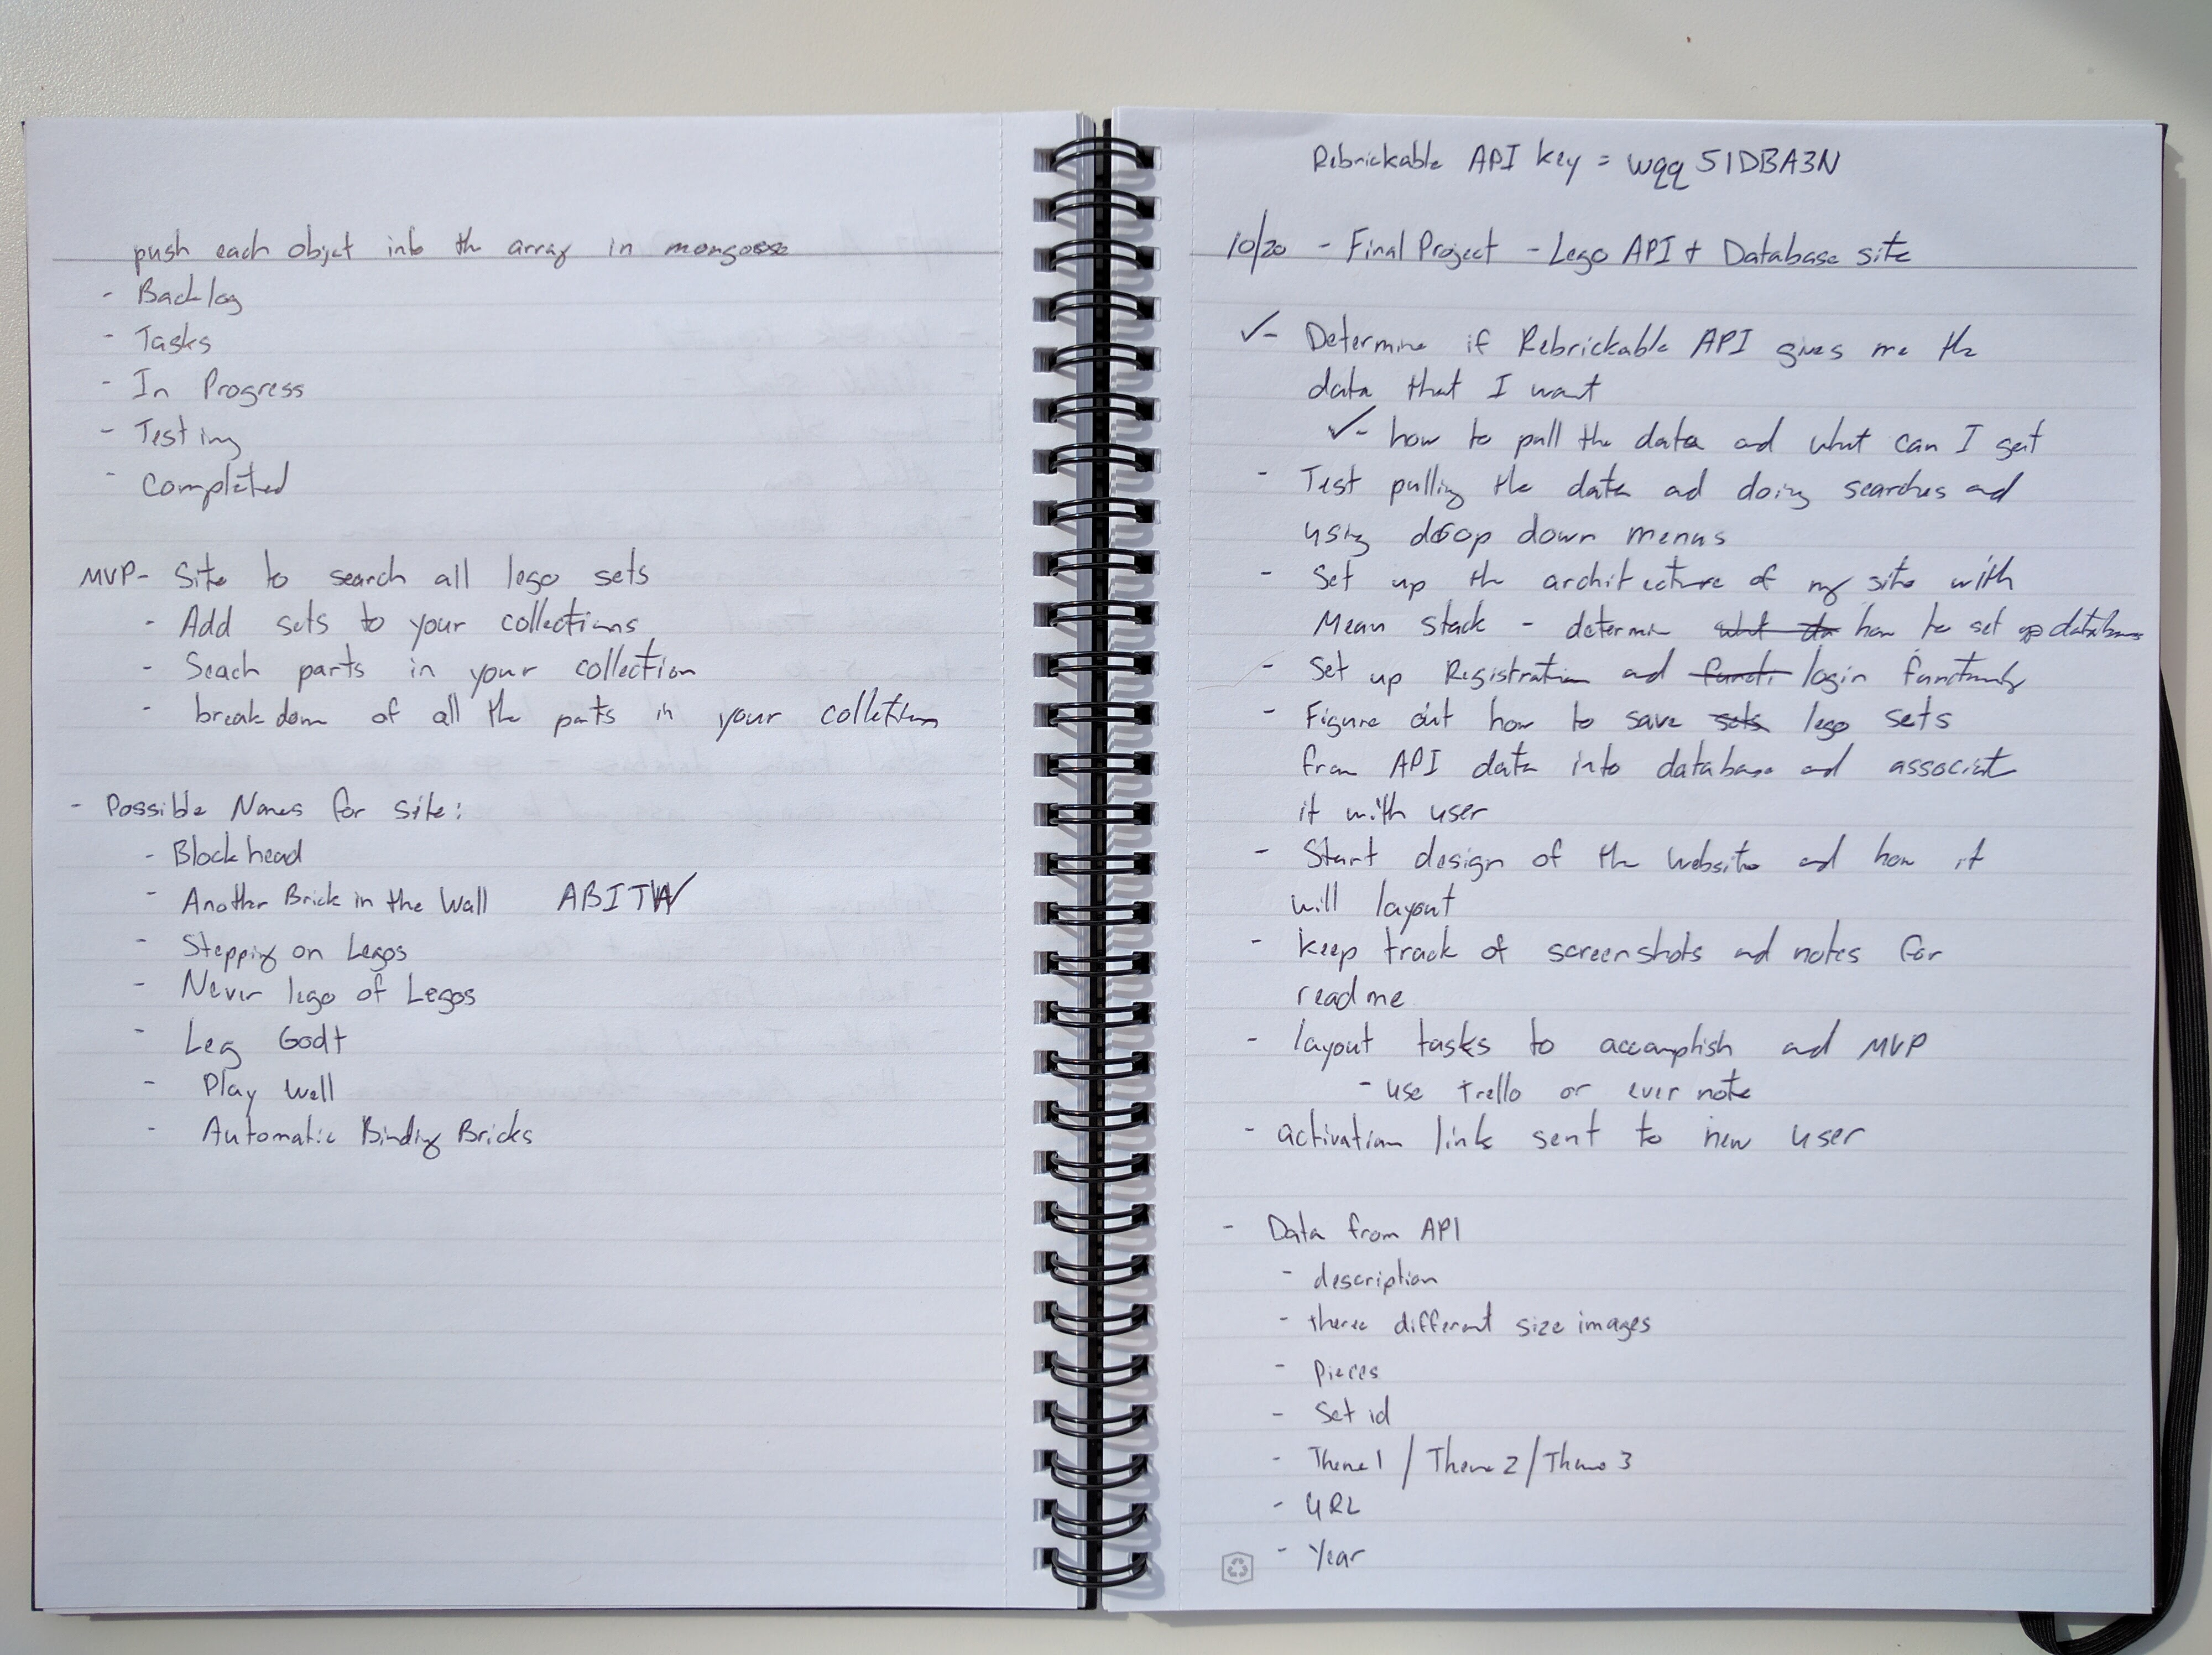 push each objct into the array in mongoose
- Backlog
- Tasks
- In Progress
- Testing
- Completed
MVP- Site to search all lego sets
- Add sets to your collections
- Seach parts in your collection
- break down of all the parts in your colletion
- Possible Names for site:
- Blockhead
- Another Brick in the Wall ABITW
- Stepping on Legos
- Never lego of Legos
- Leg Godt
- Play Well
- Automatic Binding Bricks
Rebrickable API key = wqq51DBA3N
10/20 - Final Project - Lego API + Database site
✓- Determine if Rebrickable API gives me the
data that I want
✓- how to pull the data and what can I get
- Test pulling the data and doing searches and
using drop down menus
- Set up the architecture of my site with
Mean stack - determine what da how to set up database
- Set up Registration and functi login functionality
- Figure out how to save sets lego sets
from API data into database and associate
it with user
- Start design of the website and how it
will layout
- keep track of screenshots and notes for
readme
- layout tasks to accomplish and MVP
- use trello or evernote
- activation link sent to new user
- Data from API
- description
- theree different size images
- pieces
- Set id
- Theme1 / Theme2 / Theme3
- URL
- Year